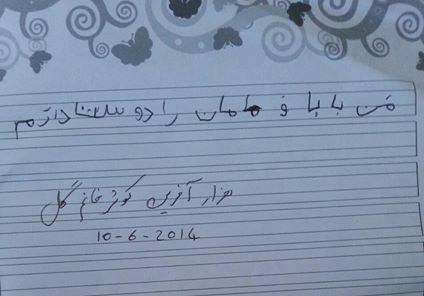 من بابا و مامان را دوست دارم
هزار آفرین کوثر خانم گل
10-6-2014